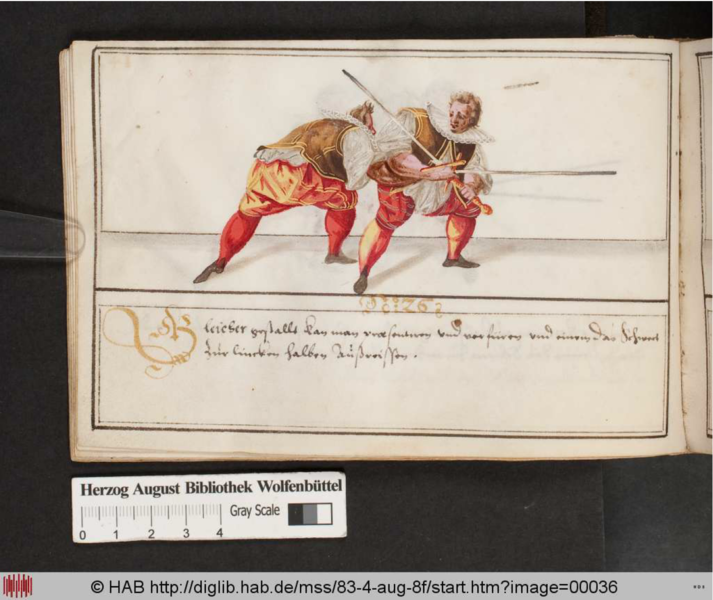 26
Gleicher gestallt kan man presentiren und verfüren und einem das Schwert
zur lincken halben Außreissen.
Herzog August Bibliothek Wolfenbüttel
Gray Scale
0 1 2 3 4
© HAB http://diglib.hab.de/mss/83-4-aug-8f/start.htm?image=00036